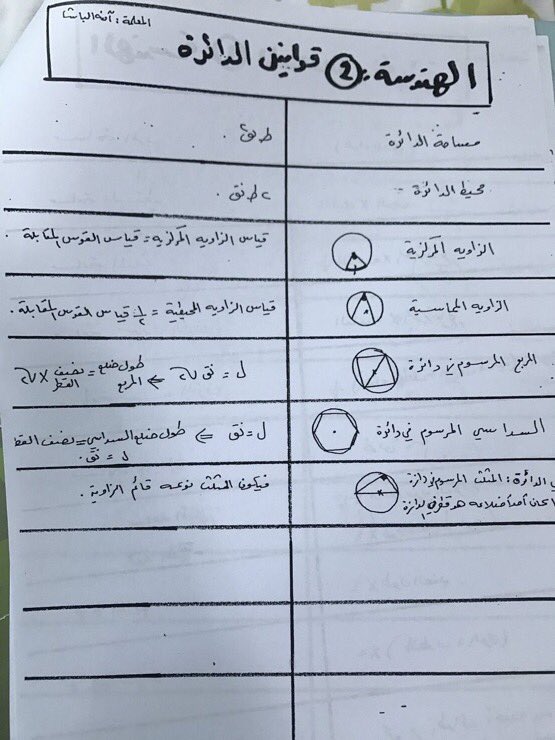 المعلمة: آنه الباشا
الهندسة: ② قوانين الدائرة
مساحة الدائرة
ط نق٢ .
محيط الدائرة
٢ ط نق .
الزاويه المركزية
قياس الزاويه المركزية = قياس القوس المقابلة .
الزاويه المماسية
قياس الزاويه المحيطية = ١/٢ قياس القوس المقابلة .
المربع المرسوم في دائرة
ل = نق √٢ ⇐ طول ضلع المربع = نصف القطر × √٢
السداسي المرسوم في دائرة
ل = نق ⇐ طول ضلع السداسي = نصف القطر
ل = نق .
الدائرة : المثلث المرسوم في دائرة
كان أحد أضلاعه هو قطر في الدائرة
فيكون المثلث نوعه قائم الزاوية .